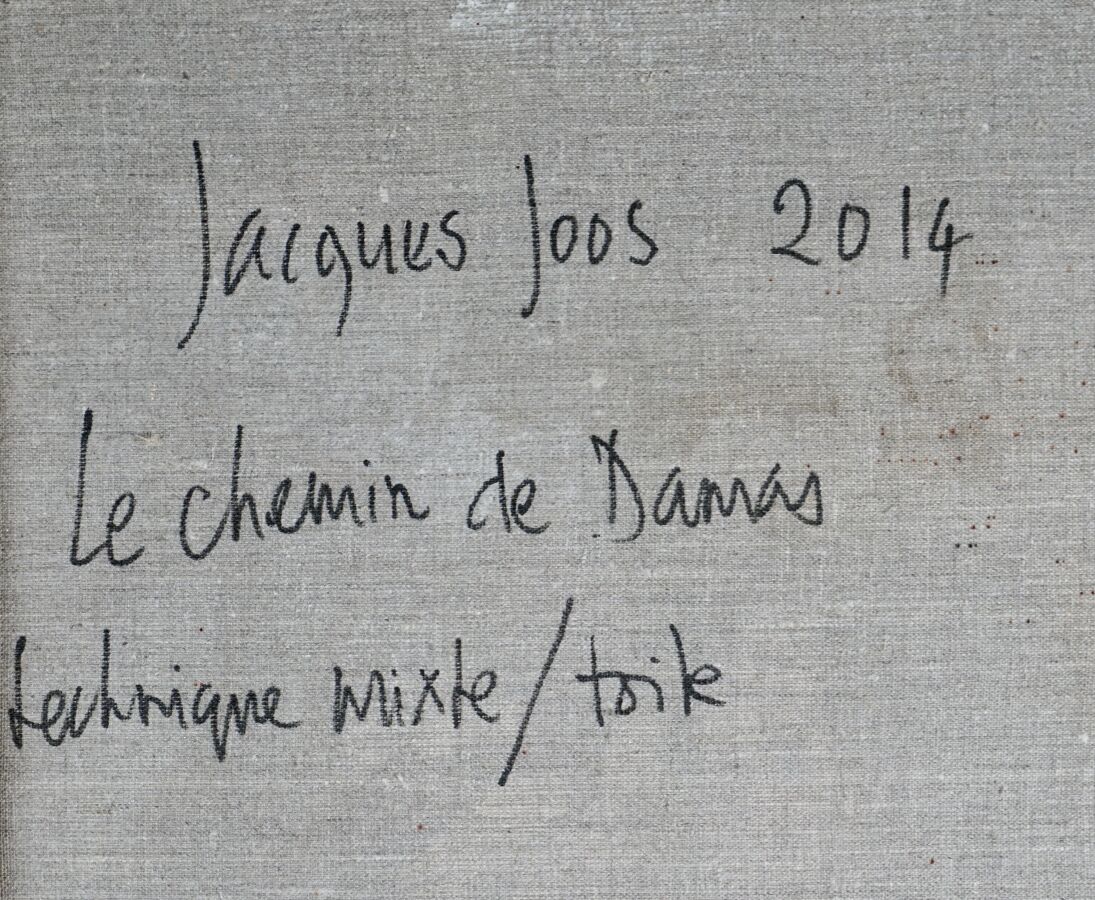 Jacques Joos 2014
Le chemin de Damas
technique mixte/toile